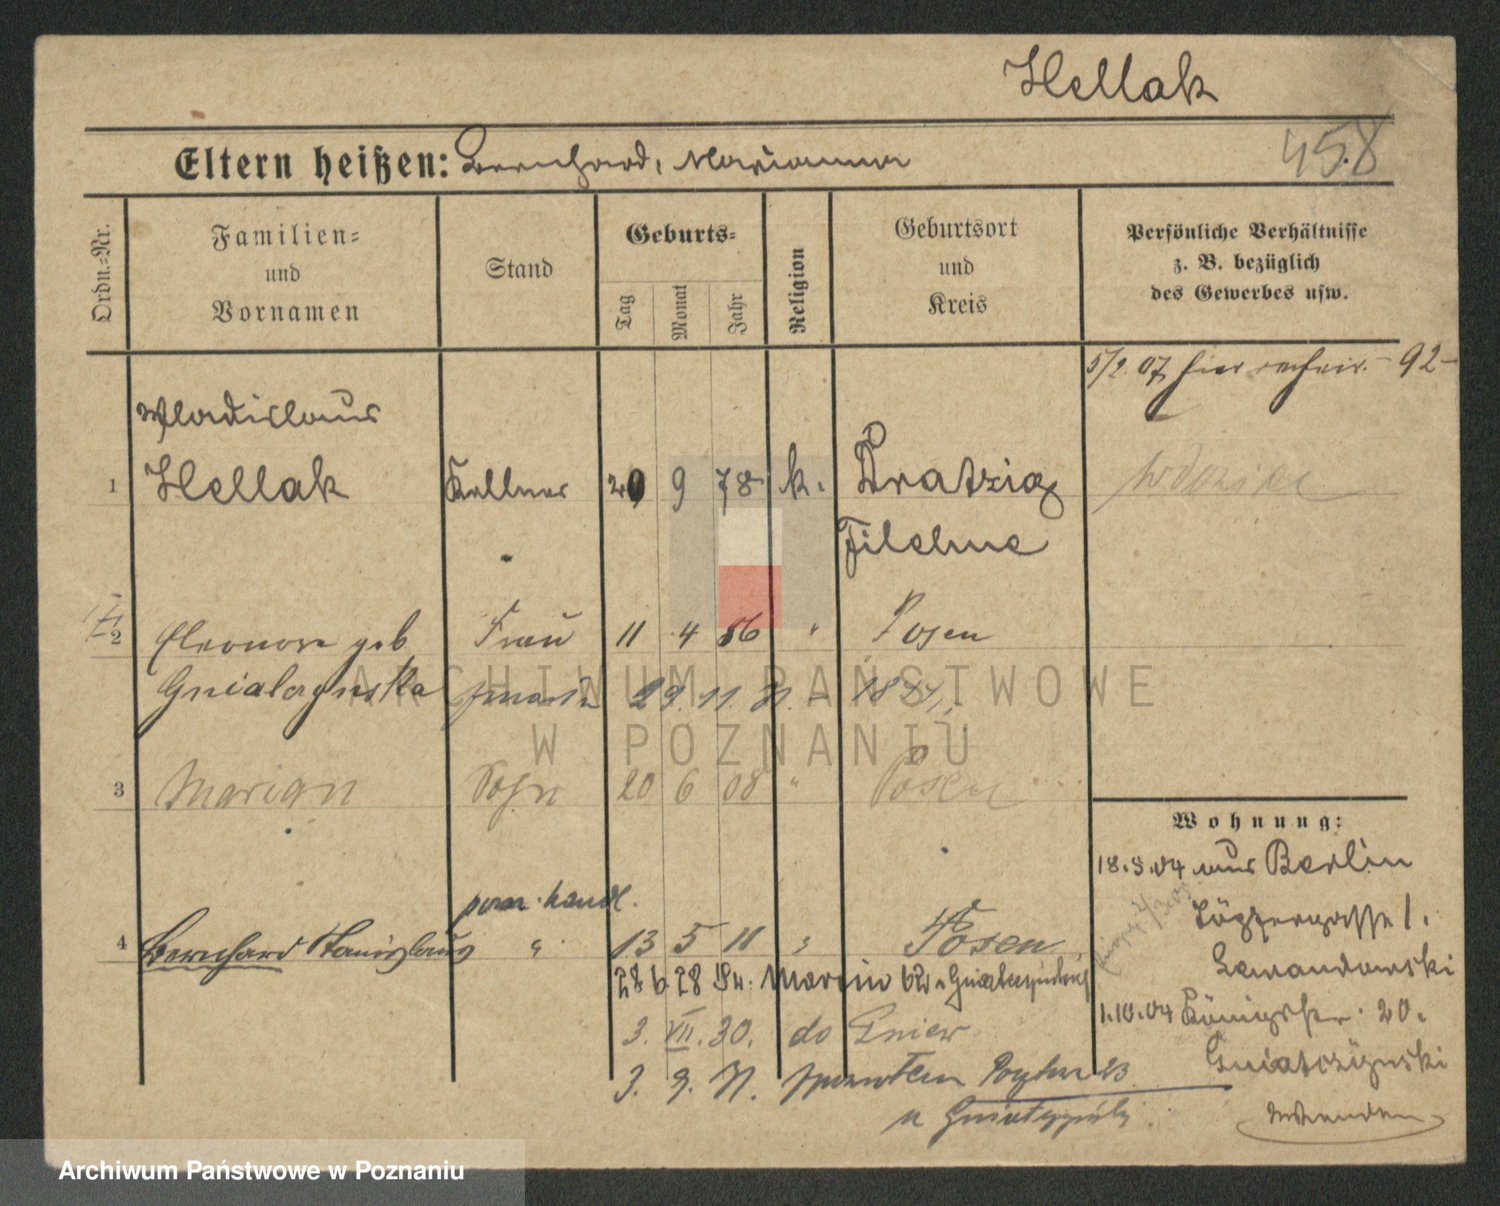 Hellak
Eltern heißen: Bernhard, Marianna
458
Ordn.-Nr.
Familien-
und
Vornamen
Stand
Geburts-
Tag
Monat
Jahr
Religion
Geburtsort
und
Kreis
Persönliche Verhältnisse
z. B. bezüglich
des Gewerbes usw.
5/2. 07 hier 92-
Wladislaus
1 Hellak Kellner 20 9 78 k. Dratzig
Filehne
2 Eleonore geb Frau 11 4 86 " Posen
Gniatczynska 29. 11. 31.
3 Marian Sohn 20 6 08 " Posen
Wohnung:
18.3.04 aus Berlin
handl.
4 Bernhard Stanislaus " 13 5 11 " Posen
Lewandowski
28 6 28 Marcin 62
1.10.04 Königstr. 20.
3. VII. 30. do Gniew
Gniatczynski
3. 9. 31. 23
ARCHIWUM PAŃSTWOWE
W POZNANIU
Archiwum Państwowe w Poznaniu